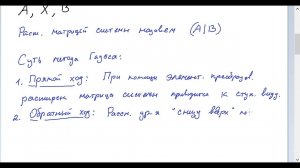 A, X, B
Расш. матрицей системы назовем (A|B)
Суть метода Гаусса:
1. Прямой ход: При помощи элемент. преобразов.
расширен матрица системы приводится к ступ. виду.
2. Обратный ход: Рассм. ур-я "снизу вверх"